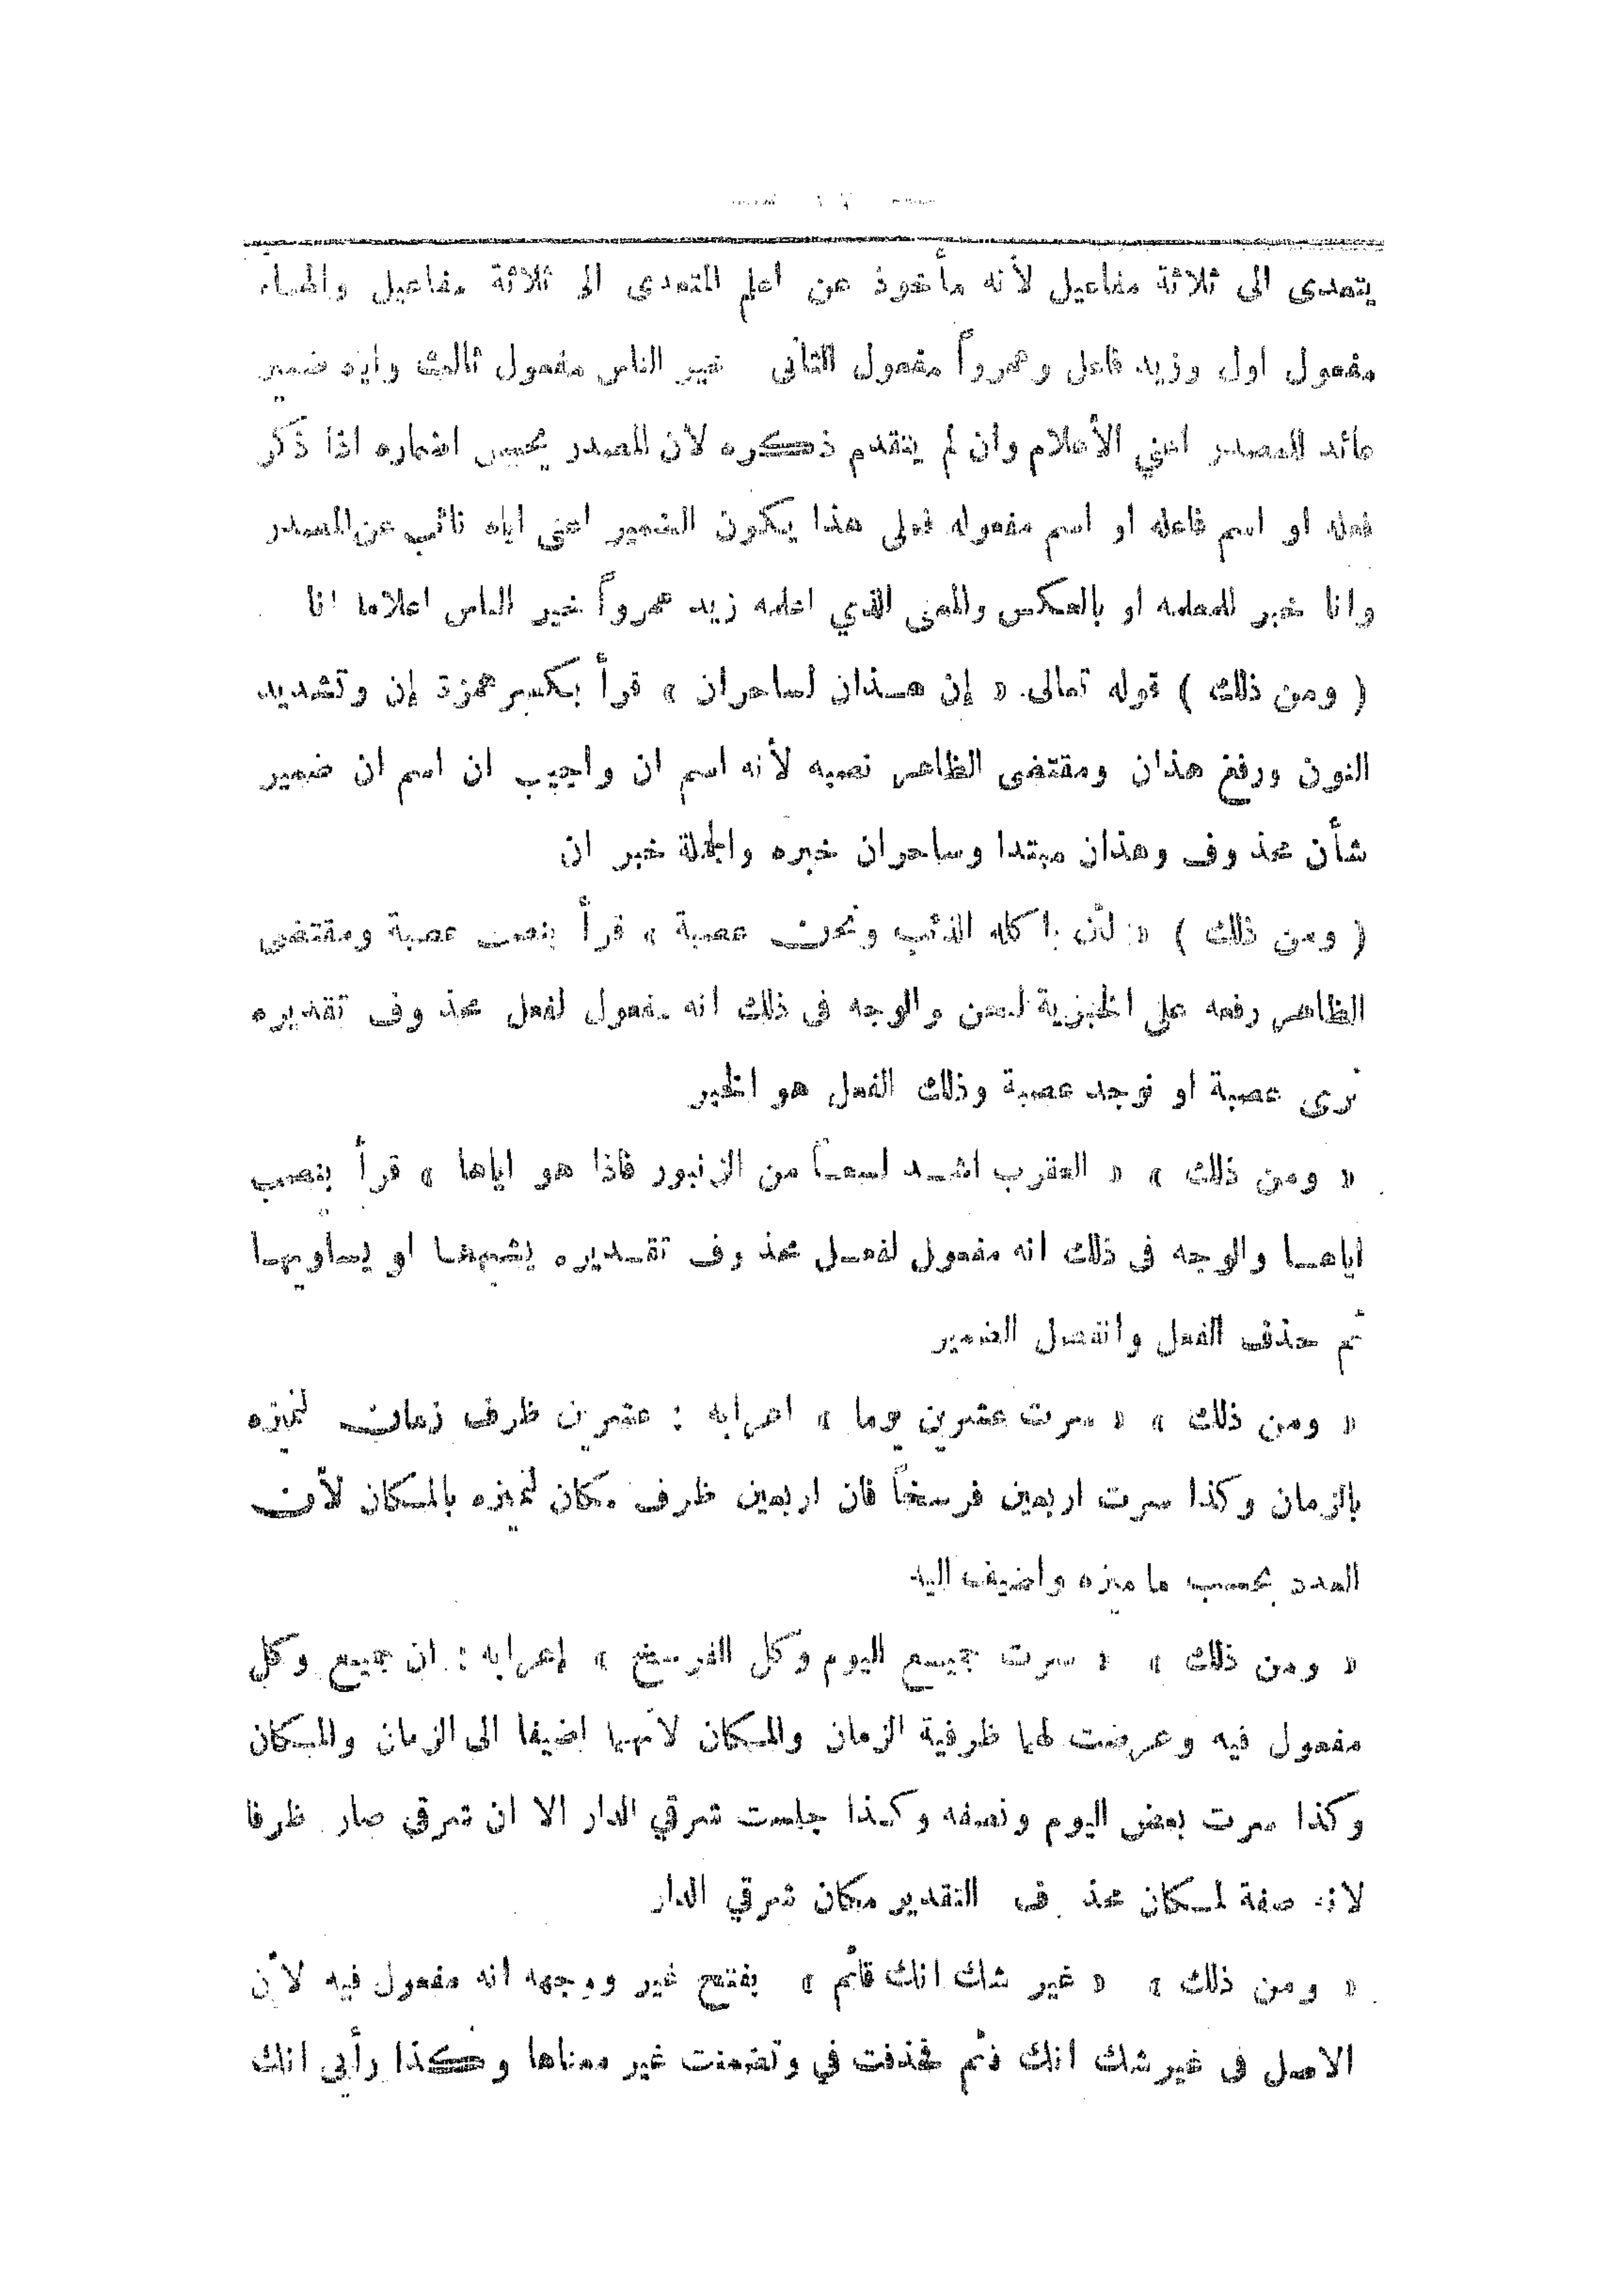 يتعدى الى ثلاثة مفاعيل لأنه مأخوذ عن اعلم المتعدى الى ثلاثة مفاعيل والهاء
مفعول اول وزيد فاعل وعمرواً مفعول الثانى خير الناس مفعول ثالث واياه ضمير
عائد للمصدر اعني الأعلام وان لم يتقدم ذكره لان المصدر يحسن اضماره اذا ذكر
فعله او اسم فاعله او اسم مفعوله فعلى هذا يكون الضمير اعنى اياه نائب عن المصدر
وانا خبر للمعلمه او بالعكس والمعنى الذي اعلمه زيد عمرواً خير الناس اعلاما انا
( ومن ذلك ) قوله تعالى « إن هذان لساحران » قرأ بكسر همزة إن وتشديد
النون ورفع هذان ومقتضى الظاهر نصبه لأنه اسم ان واجيب ان اسم ان ضمير
شأن محذوف وهذان مبتدا وساحران خبره والجملة خبر ان
( ومن ذلك ) « لئن اكله الذئب ونحن عصبة » قرأ بنصب عصبة ومقتضى
الظاهر رفعه على الخبرية لنحن والوجه فى ذلك انه مفعول لفعل محذوف تقديره
نرى عصبة او نوجد عصبة وذلك الفعل هو الخبر
« ومن ذلك » « العقرب اشد لسعاً من الزنبور فاذا هو اياها » قرأ بنصب
اياها والوجه فى ذلك انه مفعول لفعل محذوف تقديره يشبهها او يساويها
ثم حذف الفعل وانفصل الضمير
« ومن ذلك » « سرت عشرين يوما » اعرابه : عشرين ظرف زمان لتميزه
بالزمان وكذا سرت اربعين فرسخاً فان اربعين ظرف مكان لتميزه بالمكان لأن
العدد بحسب ما ميزه واضيف اليه
« ومن ذلك » « سرت جميع اليوم وكل الفرسخ » إعرابه : ان جميع وكل
مفعول فيه وعرضت لهما ظرفية الزمان والمكان لأنهما اضيفا الى الزمان والمكان
وكذا سرت بعض اليوم ونصفه وكذا جلست شرقي الدار الا ان شرقى صار ظرفا
لانه صفة لمكان محذوف التقدير مكان شرقي الدار
« ومن ذلك » « غير شك انك قائم » بفتح غير ووجهه انه مفعول فيه لأن
الاصل فى غير شك انك قائم فحذفت في وتضمنت غير معناها وكذا رأبي انك